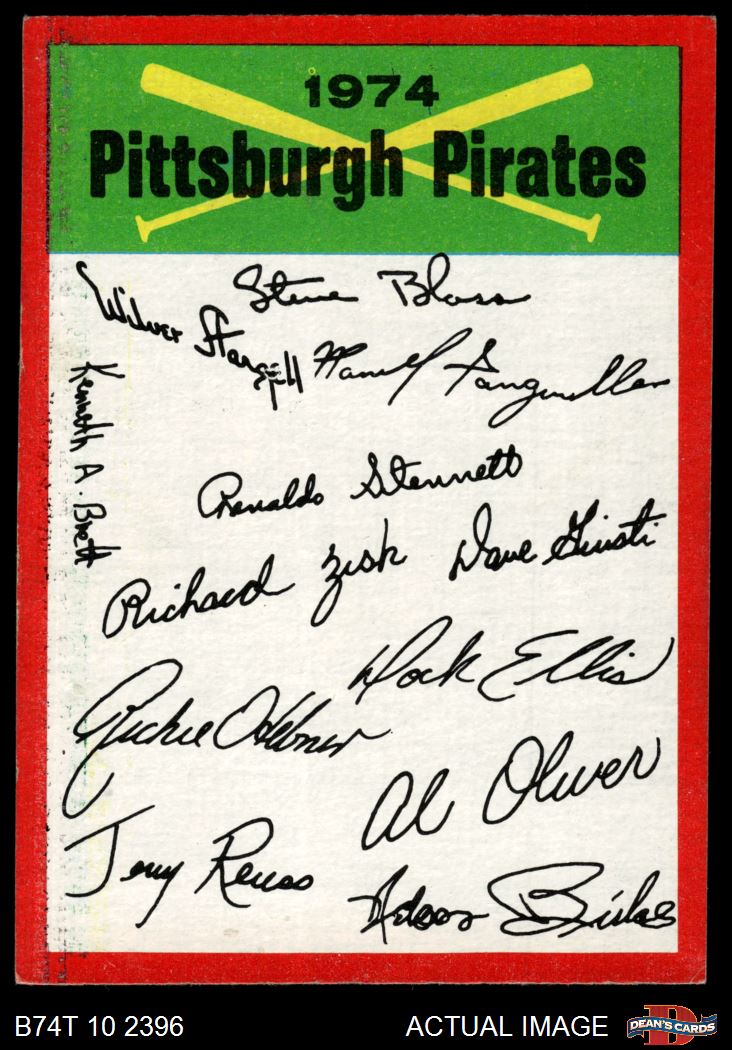 1974
Pittsburgh Pirates
Steve Blass
Wilver Stargell
Manuel Sanguillen
Kenneth A. Brett
Renaldo Stennett
Richard Zisk
Dave Giusti
Dock Ellis
Richie Hebner
Al Oliver
Jerry Reuss
Nelson Briles
B74T 10 2396
ACTUAL IMAGE
D
DEAN'S CARDS